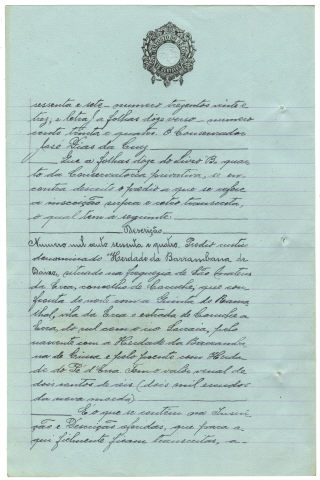 sessenta e sete - numero trezentos vinte e
tres, e letra) a folhas doze verso - numero
cento trinta e quatro. O Conservador
José Dias da Cruz
Que a folhas doze do Livro B. qua-
to da Conservatoria privativa, se en-
contra descrito o predio a que se refere
a inscrição supra e retro transcrita,
o qual tem a seguinte
Descrição
Numero mil cento sessenta e quatro. Predio rustico
denominado "Herdade da Barrambana de
Baixo, situado na freguezia de São
da Erra, concelho de Coruche, que con-
fronta do norte com a Quinta do
vila da Erra e estrada de Coruche a
Erra, do sul com o rio Sorraia, pelo
nascente com a Herdade da Barramba-
na de Cima e pelo poente com Herda-
de do Pé d'Erra Tem o valor venal de
dois contos de réis (dois mil escudos
da nova moeda)
É o que se contem na Inscri-
ção e Descrição aludidas, que para a-
qui fielmente ficam transcritas, a-